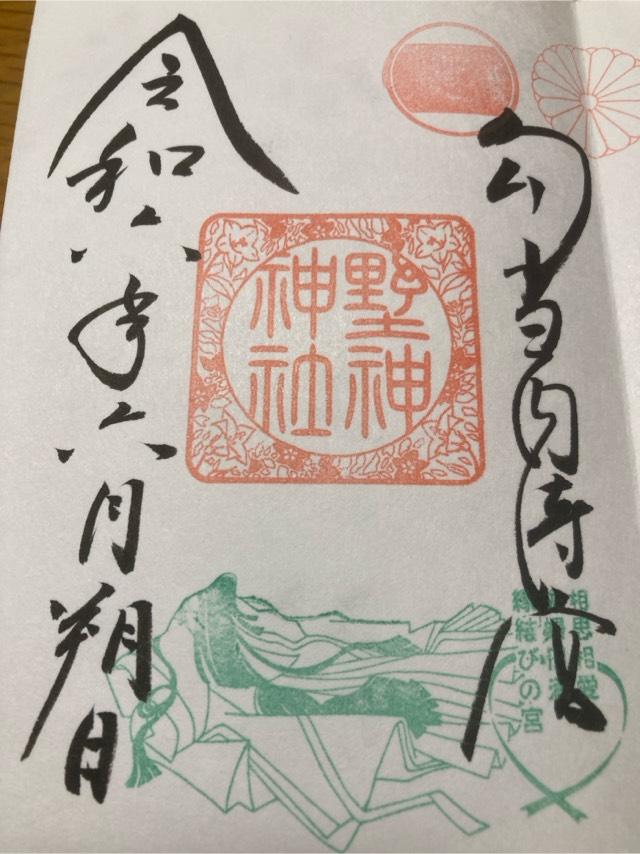 勾当内侍
野神
神社
相思相愛
縁結びの宮
令和六年六月朔日